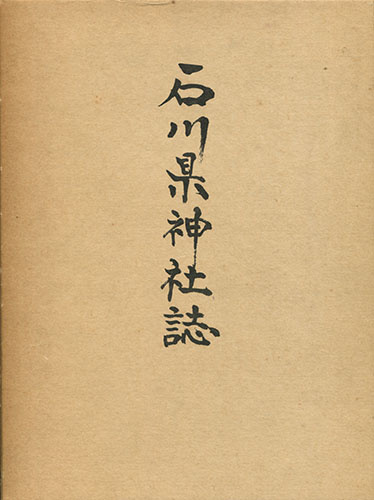 石川県神社誌